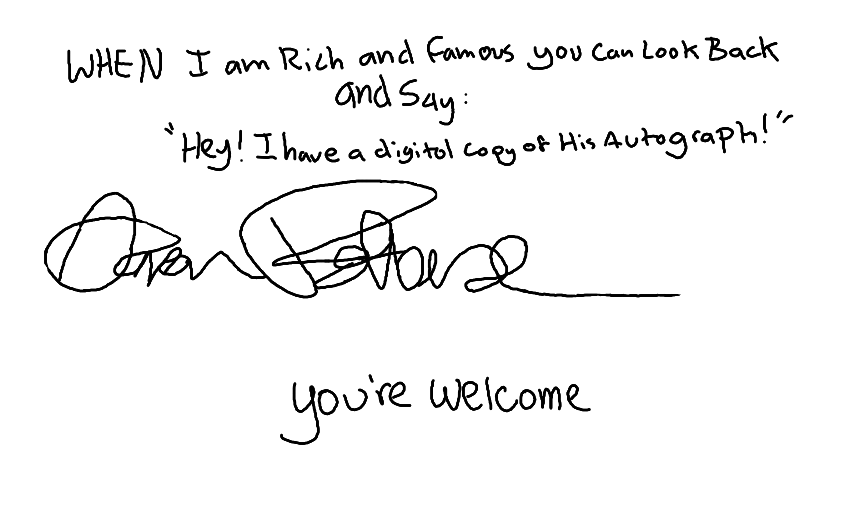 WHEN I am Rich and famous you can Look Back
and Say:
"Hey! I have a digital copy of His Autograph!"
you're welcome